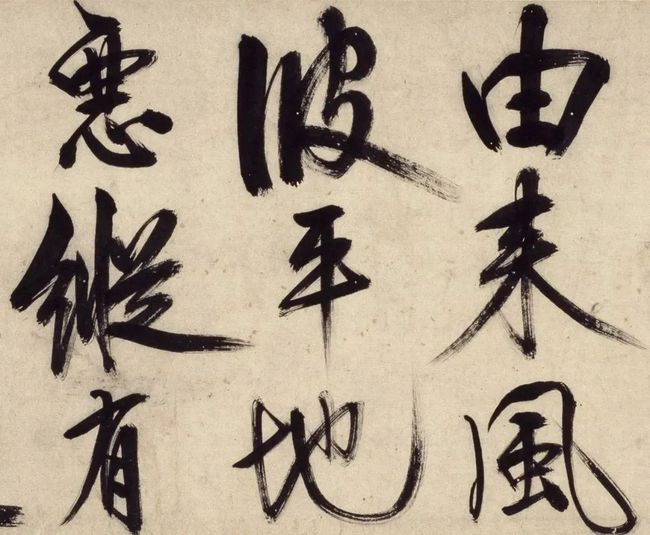 由来風
波平地
惡縱有